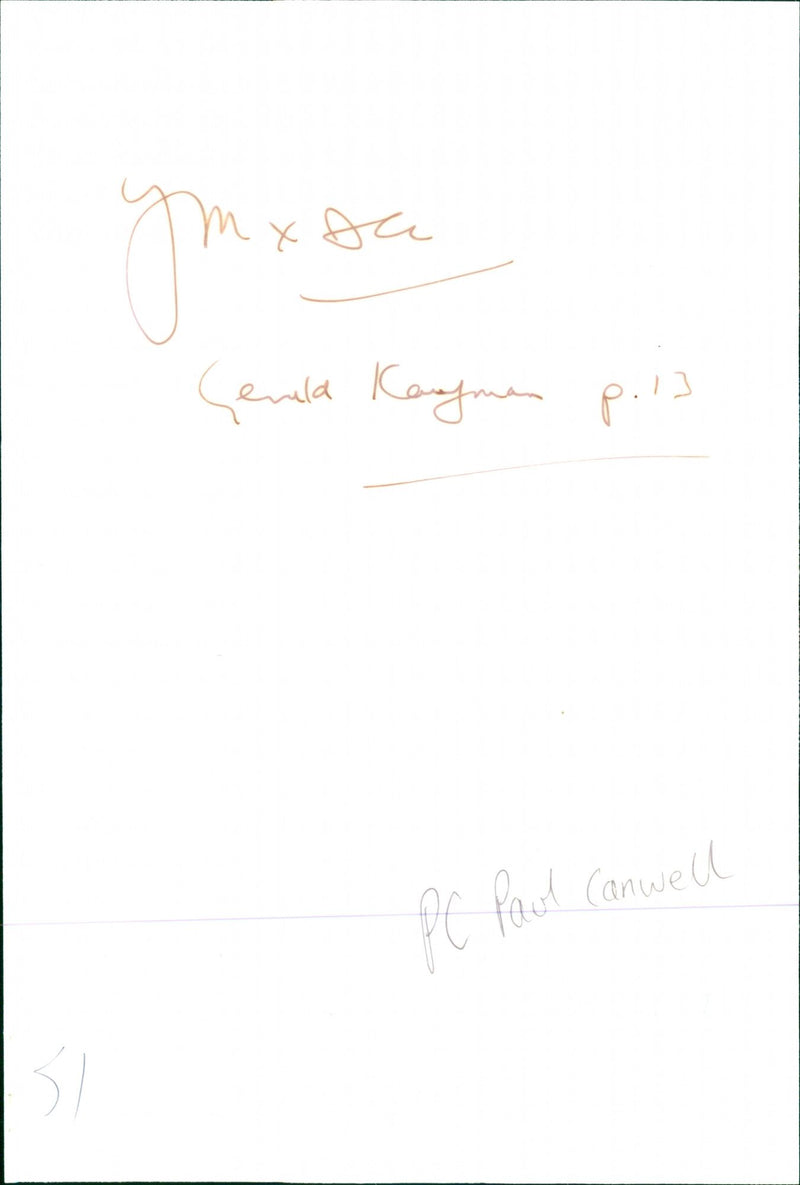 YM x
Gerald Kaufman p.13
PC Paul Canwell
51